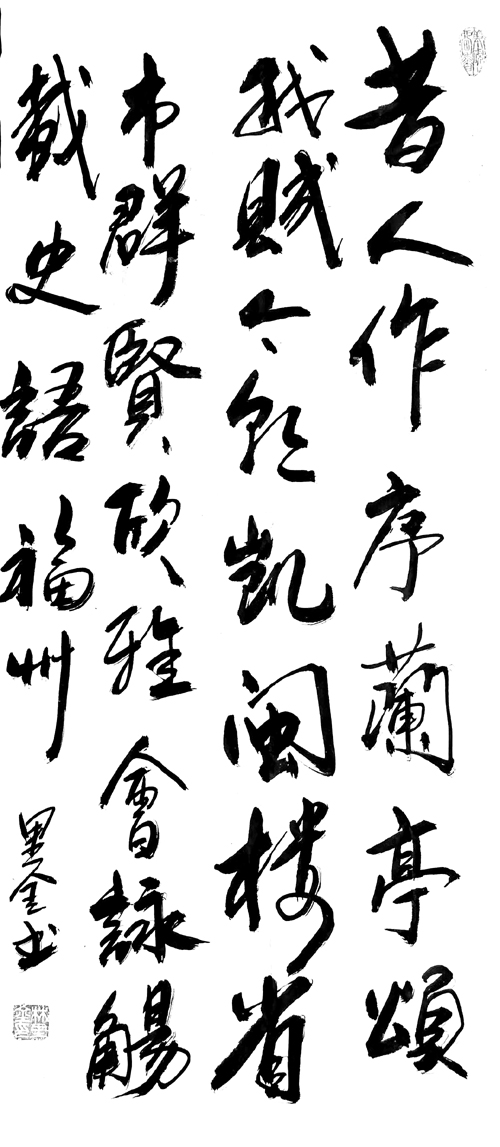 昔人作序蘭亭頌
我賦今凱闽楼省
市群賢欣雅會詠觴
載史語福州
墨金书